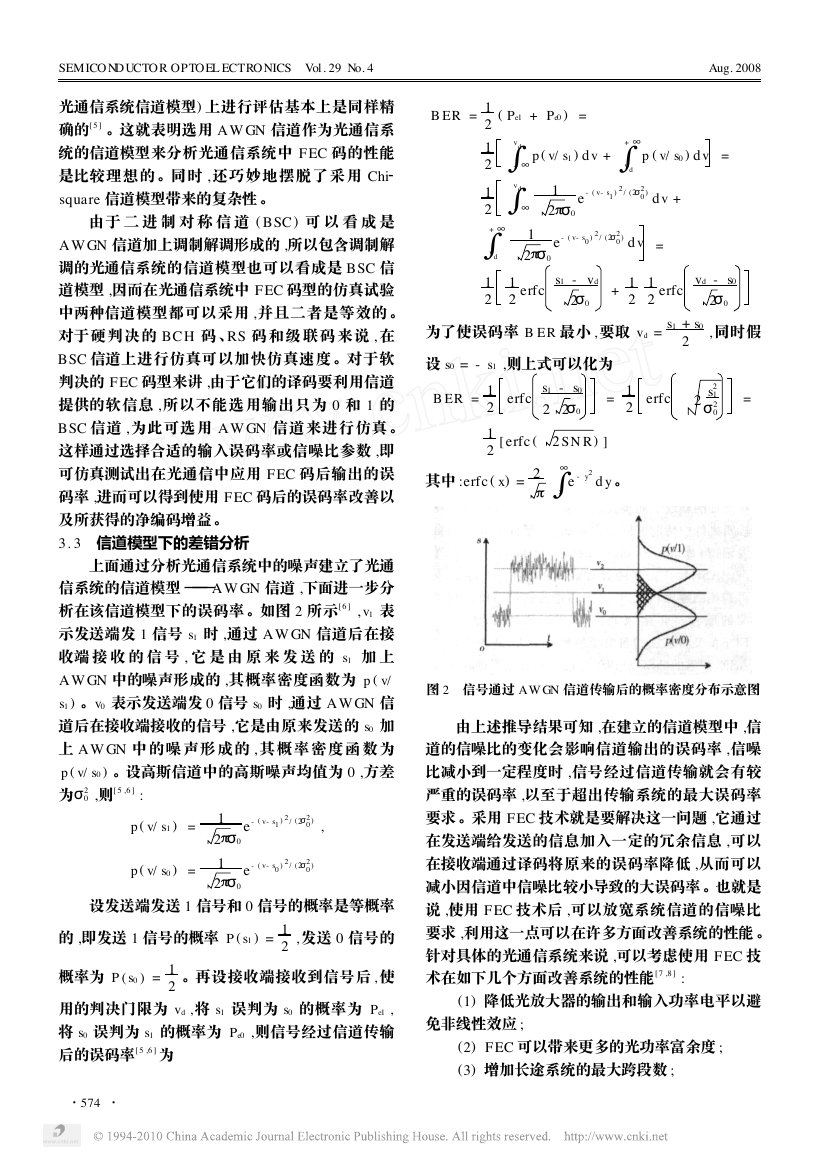 SEMICONDUCTOR OPTOELECTRONICS Vol. 29 No. 4 Aug. 2008
光通信系统信道模型) 上进行评估基本上是同样精
确的[5]。这就表明选用 AWGN 信道作为光通信系
统的信道模型来分析光通信系统中 FEC 码的性能
是比较理想的。同时,还巧妙地摆脱了采用 Chi-
square 信道模型带来的复杂性。
由于二进制对称信道 (BSC) 可以看成是
AWGN 信道加上调制解调形成的,所以包含调制解
调的光通信系统的信道模型也可以看成是 BSC 信
道模型,因而在光通信系统中 FEC 码型的仿真试验
中两种信道模型都可以采用,并且二者是等效的。
对于硬判决的 BCH 码、RS 码和级联码来说,在
BSC 信道上进行仿真可以加快仿真速度。对于软
判决的 FEC 码型来讲,由于它们的译码要利用信道
提供的软信息,所以不能选用输出只为 0 和 1 的
BSC 信道,为此可选用 AWGN 信道来进行仿真。
这样通过选择合适的输入误码率或信噪比参数,即
可仿真测试出在光通信中应用 FEC 码后输出的误
码率,进而可以得到使用 FEC 码后的误码率改善以
及所获得的净编码增益。
3.3 信道模型下的差错分析
上面通过分析光通信系统中的噪声建立了光通
信系统的信道模型——AWGN 信道,下面进一步分
析在该信道模型下的误码率。如图 2 所示[6],v₁ 表
示发送端发 1 信号 s₁ 时,通过 AWGN 信道后在接
收端接收的信号,它是由原来发送的 s₁ 加上
AWGN 中的噪声形成的,其概率密度函数为 p(v/
s₁)。v₀ 表示发送端发 0 信号 s₀ 时,通过 AWGN 信
道后在接收端接收的信号,它是由原来发送的 s₀ 加
上 AWGN 中的噪声形成的,其概率密度函数为
p(v/s₀)。设高斯信道中的高斯噪声均值为 0,方差
为σ₀²,则[5,6]:
p(v/s₁) = 1/(√2πσ₀) e^-(v-s₁)²/(2σ₀²),
p(v/s₀) = 1/(√2πσ₀) e^-(v-s₀)²/(2σ₀²)
设发送端发送 1 信号和 0 信号的概率是等概率
的,即发送 1 信号的概率 P(s₁) = 1/2,发送 0 信号的
概率为 P(s₀) = 1/2。再设接收端接收到信号后,使
用的判决门限为 v_d,将 s₁ 误判为 s₀ 的概率为 P_e1,
将 s₀ 误判为 s₁ 的概率为 P_e0,则信号经过信道传输
后的误码率[5,6]为
·574·
BER = 1/2 (P_e1 + P_e0) =
1/2[∫_-∞^v_d p(v/s₁)dv + ∫_v_d^+∞ p(v/s₀)dv] =
1/2[∫_-∞^v_d 1/(√2πσ₀) e^-(v-s₁)²/(2σ₀²) dv +
∫_v_d^+∞ 1/(√2πσ₀) e^-(v-s₀)²/(2σ₀²) dv] =
1/2[1/2 erfc((s₁ - v_d)/(√2σ₀)) + 1/2 1/2 erfc((v_d - s₀)/(√2σ₀))]
为了使误码率 BER 最小,要取 v_d = (s₁ + s₀)/2,同时假
设 s₀ = - s₁,则上式可以化为
BER = 1/2[erfc((s₁ - s₀)/(2√2σ₀))] = 1/2[erfc(√(2 s₁²/σ₀²))] =
1/2[erfc(√2SNR)]
其中:erfc(x) = 2/√π ∫^∞ e^-y² dy。
s
v₂
v₁
v₀
p(v/1)
p(v/0)
o
t
图 2 信号通过 AWGN 信道传输后的概率密度分布示意图
由上述推导结果可知,在建立的信道模型中,信
道的信噪比的变化会影响信道输出的误码率,信噪
比减小到一定程度时,信号经过信道传输就会有较
严重的误码率,以至于超出传输系统的最大误码率
要求。采用 FEC 技术就是要解决这一问题,它通过
在发送端给发送的信息加入一定的冗余信息,可以
在接收端通过译码将原来的误码率降低,从而可以
减小因信道中信噪比较小导致的大误码率。也就是
说,使用 FEC 技术后,可以放宽系统信道的信噪比
要求,利用这一点可以在许多方面改善系统的性能。
针对具体的光通信系统来说,可以考虑使用 FEC 技
术在如下几个方面改善系统的性能[7,8]:
(1) 降低光放大器的输出和输入功率电平以避
免非线性效应;
(2) FEC 可以带来更多的光功率富余度;
(3) 增加长途系统的最大跨段数;
© 1994-2010 China Academic Journal Electronic Publishing House. All rights reserved. http://www.cnki.net